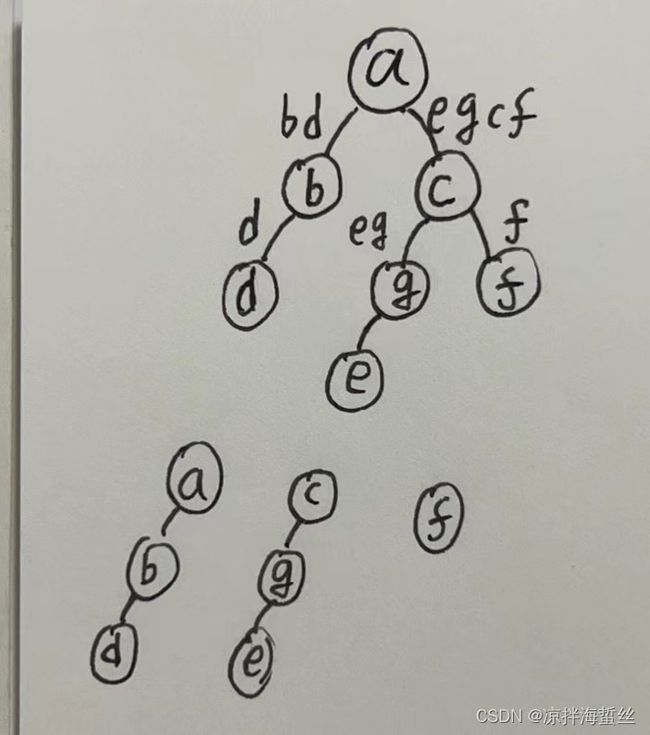 a
bd egcf
b c
d eg f
d g f
e
a c f
b g
d e
CSDN @凉拌海蜇丝